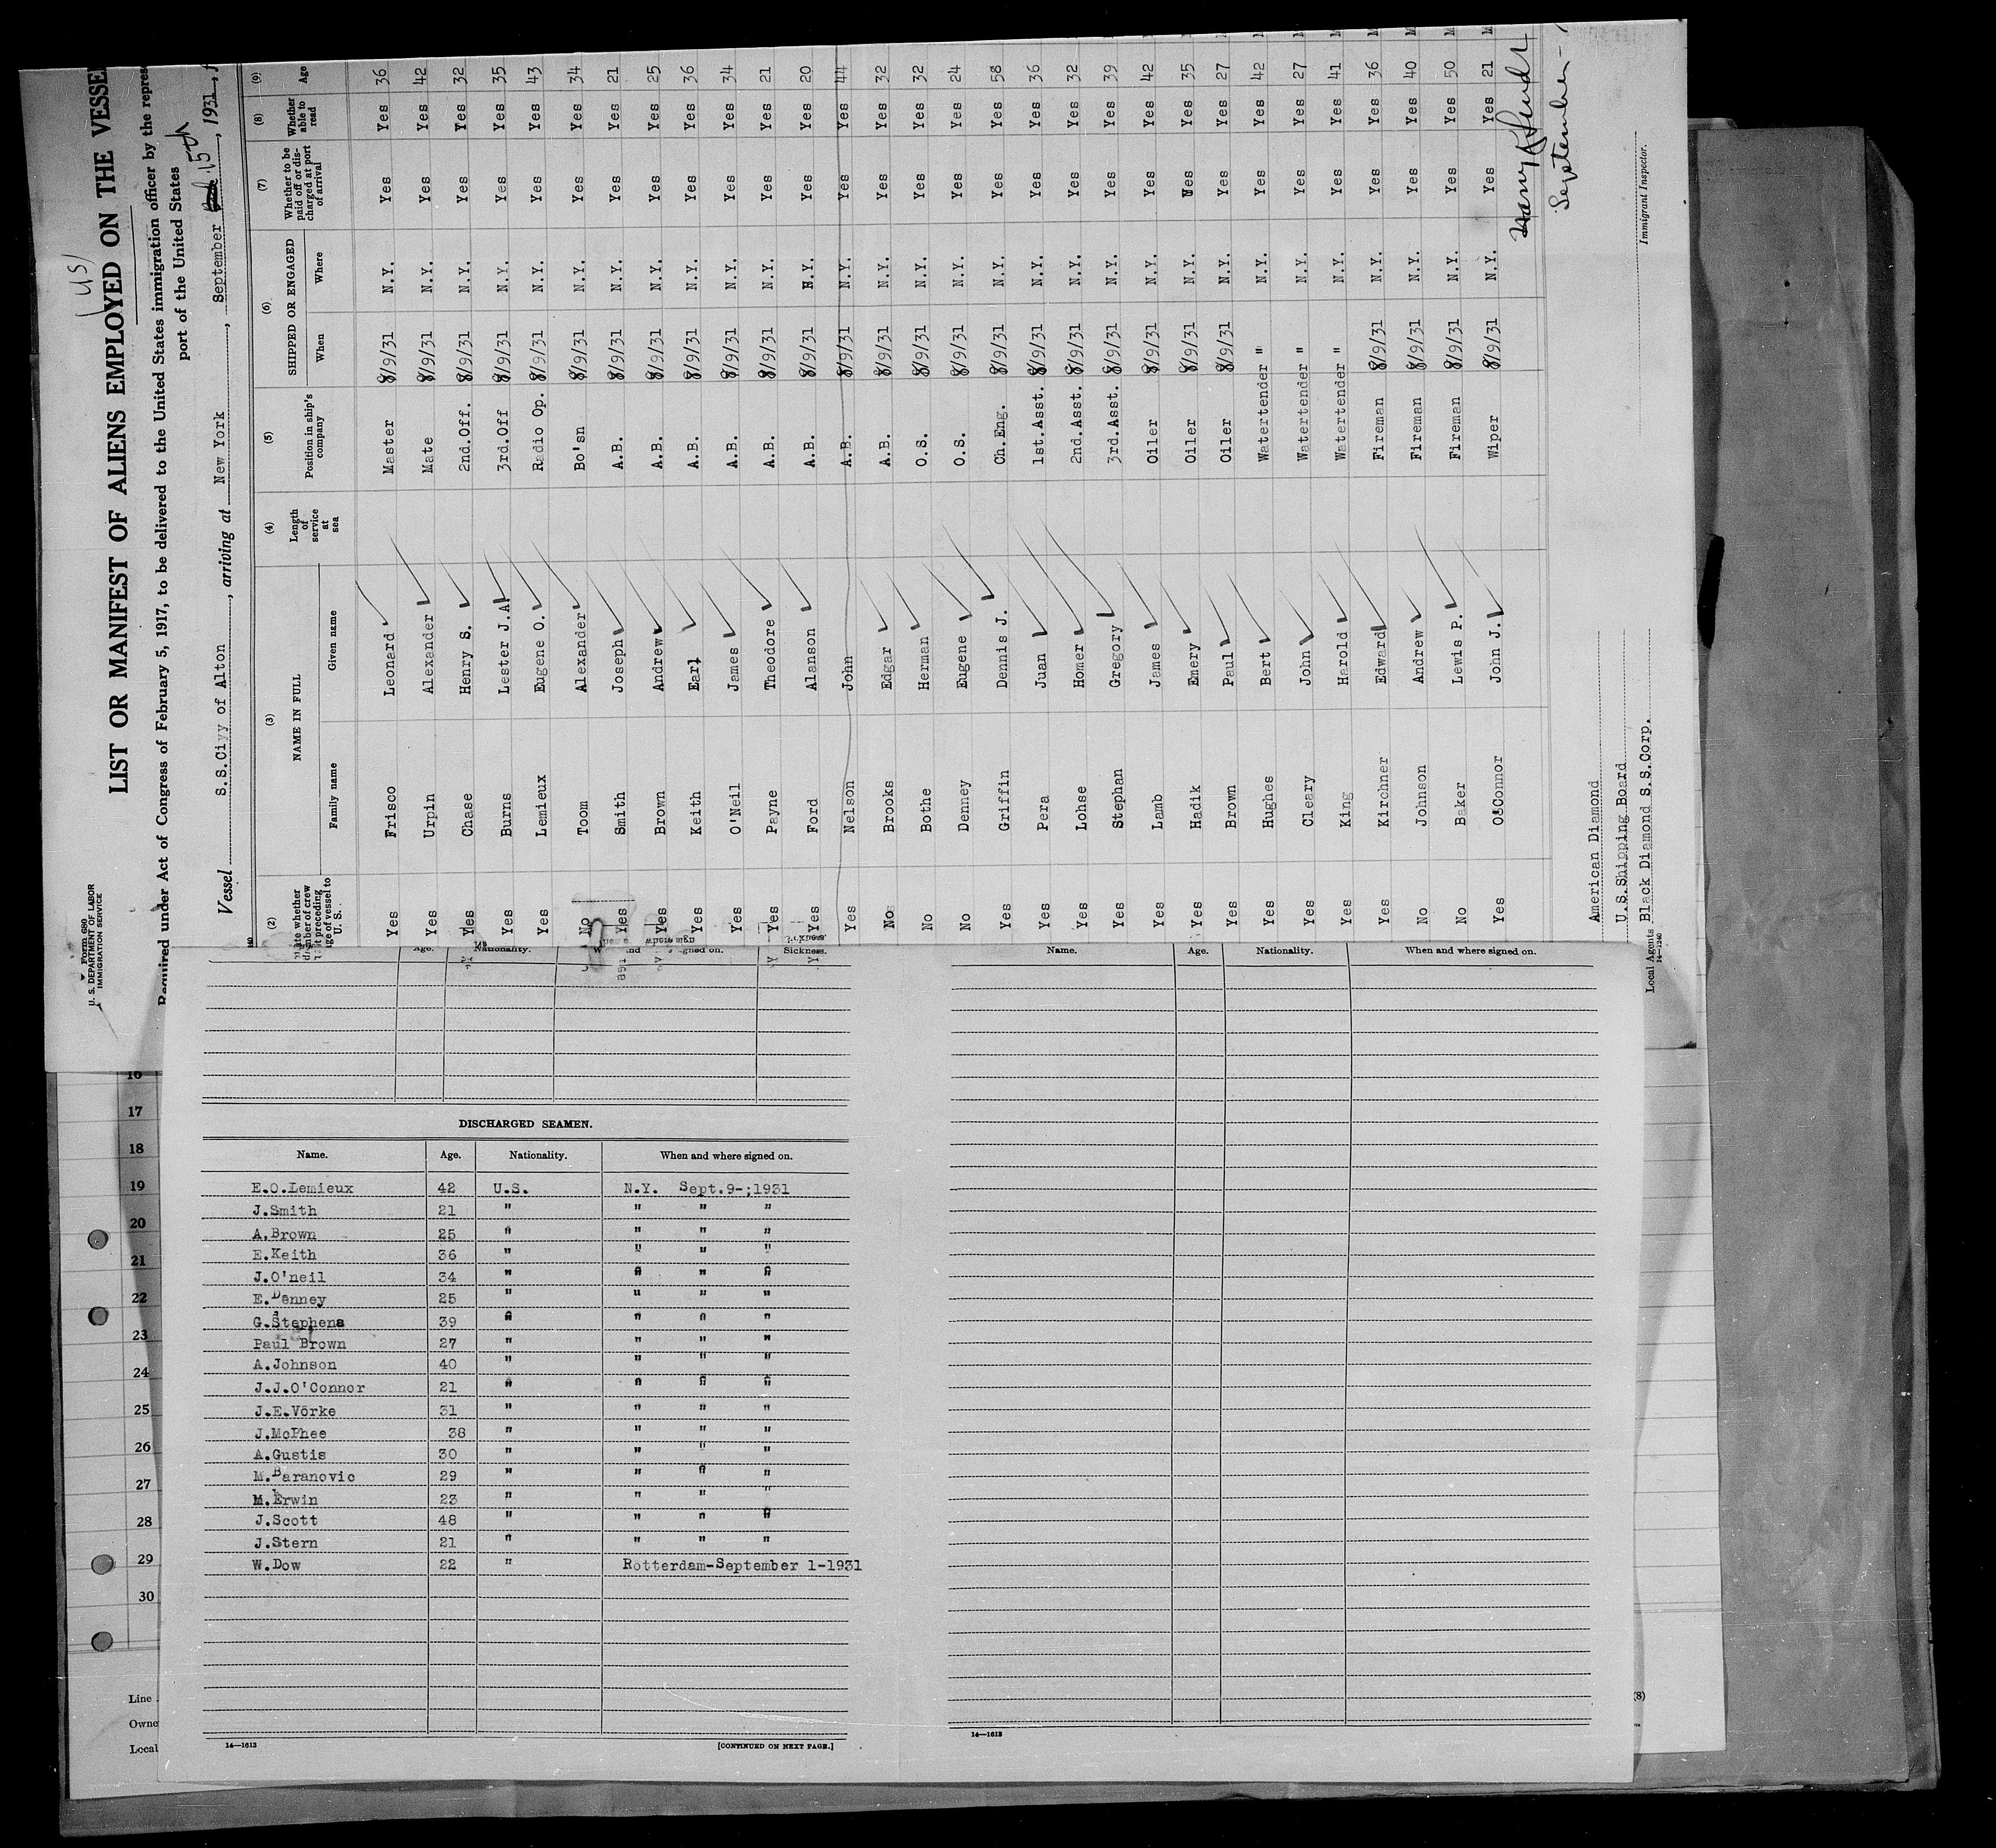 (US)
Form 680
U. S. DEPARTMENT OF LABOR
IMMIGRATION SERVICE
LIST OR MANIFEST OF ALIENS EMPLOYED ON THE VESSE
Required under Act of Congress of February 5, 1917, to be delivered to the United States immigration officer by the repres
port of the United States
Vessel S.S.Ciyy of Alton, arriving at New York, September 15th, 1931,
(2) (3) (4) (5) (6) (7) (8) (9)
NAME IN FULL Length of service at sea Position in ship's company SHIPPED OR ENGAGED Whether to be paid off or discharged at port of arrival Whether able to read Age
Family name Given name When Where
Yes Frisco Leonard Master 8/9/31 N.Y. Yes Yes 36
Yes Urpin Alexander Mate 8/9/31 N.Y. Yes Yes 42
Yes Chase Henry S. 2nd.Off. 8/9/31 N.Y. Yes Yes 32
Yes Burns Lester J.A. 3rd.Off 8/9/31 N.Y. Yes Yes 35
Yes Lemieux Eugene O. Radio Op. 8/9/31 N.Y. Yes Yes 43
No Toom Alexander Bo'sn 8/9/31 N.Y. Yes Yes 34
Yes Smith Joseph A.B. 8/9/31 N.Y. Yes Yes 21
Yes Brown Andrew A.B. 8/9/31 N.Y. Yes Yes 25
Yes Keith Earl A.B. 8/9/31 N.Y. Yes Yes 36
Yes O'Neil James A.B. 8/9/31 N.Y. Yes Yes 34
Yes Payne Theodore A.B. 8/9/31 N.Y. Yes Yes 21
Yes Ford Alanson A.B. 8/9/31 N.Y. Yes Yes 20
Yes Nelson John A.B. 8/9/31 N.Y. Yes Yes 44
No Brooks Edgar A.B. 8/9/31 N.Y. Yes Yes 32
No Bothe Herman O.S. 8/9/31 N.Y. Yes Yes 32
No Denney Eugene O.S. 8/9/31 N.Y. Yes Yes 24
Yes Griffin Dennis J. Ch.Eng. 8/9/31 N.Y. Yes Yes 58
Yes Pera Juan 1st.Asst. 8/9/31 N.Y. Yes Yes 36
Yes Lohse Homer 2nd.Asst. 8/9/31 N.Y. Yes Yes 32
Yes Stephan Gregory 3rd.Asst. 8/9/31 N.Y. Yes Yes 39
Yes Lamb James Oiler 8/9/31 N.Y. Yes Yes 42
Yes Hadik Emery Oiler 8/9/31 N.Y. Yes Yes 35
Yes Brown Paul Oiler 8/9/31 N.Y. Yes Yes 27
Yes Hughes Bert Watertender " N.Y. Yes Yes 42
Yes Cleary John Watertender " N.Y. Yes Yes 27
Yes King Harold Watertender " N.Y. Yes Yes 41
Yes Kirchner Edward Fireman 8/9/31 N.Y. Yes Yes 36
No Johnson Andrew Fireman 8/9/31 N.Y. Yes Yes 40
No Baker Lewis P. Fireman 8/9/31 N.Y. Yes Yes 50
Yes O'Connor John J. Wiper 8/9/31 N.Y. Yes Yes 21
September
American Diamond
U.S.Shipping Board
Local Agents Black Diamond S.S.Corp.
14—1240
Immigrant Inspector.
Age. Nationality. When and where signed on. Sickness.
DISCHARGED SEAMEN.
Name. Age. Nationality. When and where signed on.
E.O.Lemieux 42 U.S. N.Y. Sept.9-;1931
J.Smith 21 " " " "
A.Brown 25 " " " "
E.Keith 36 " " " "
J.O'neil 34 " " " "
E.Denney 25 " " " "
G.Stephens 39 " " " "
Paul Brown 27 " " " "
A.Johnson 40 " " " "
J.J.O'Connor 21 " " " "
J.E.Vorke 31 " " " "
J.McPhee 38 " " " "
A.Gustis 30 " " " "
M.Baranovic 29 " " " "
M.Erwin 23 " " " "
J.Scott 48 " " " "
J.Stern 21 " " " "
W.Dow 22 " Rotterdam-September 1-1931
14—1613
[CONTINUED ON NEXT PAGE.]
Name. Age. Nationality. When and where signed on.
14—1613
16
17
18
19
20
21
22
23
24
25
26
27
28
29
30
Line
Owne
Local
(8)